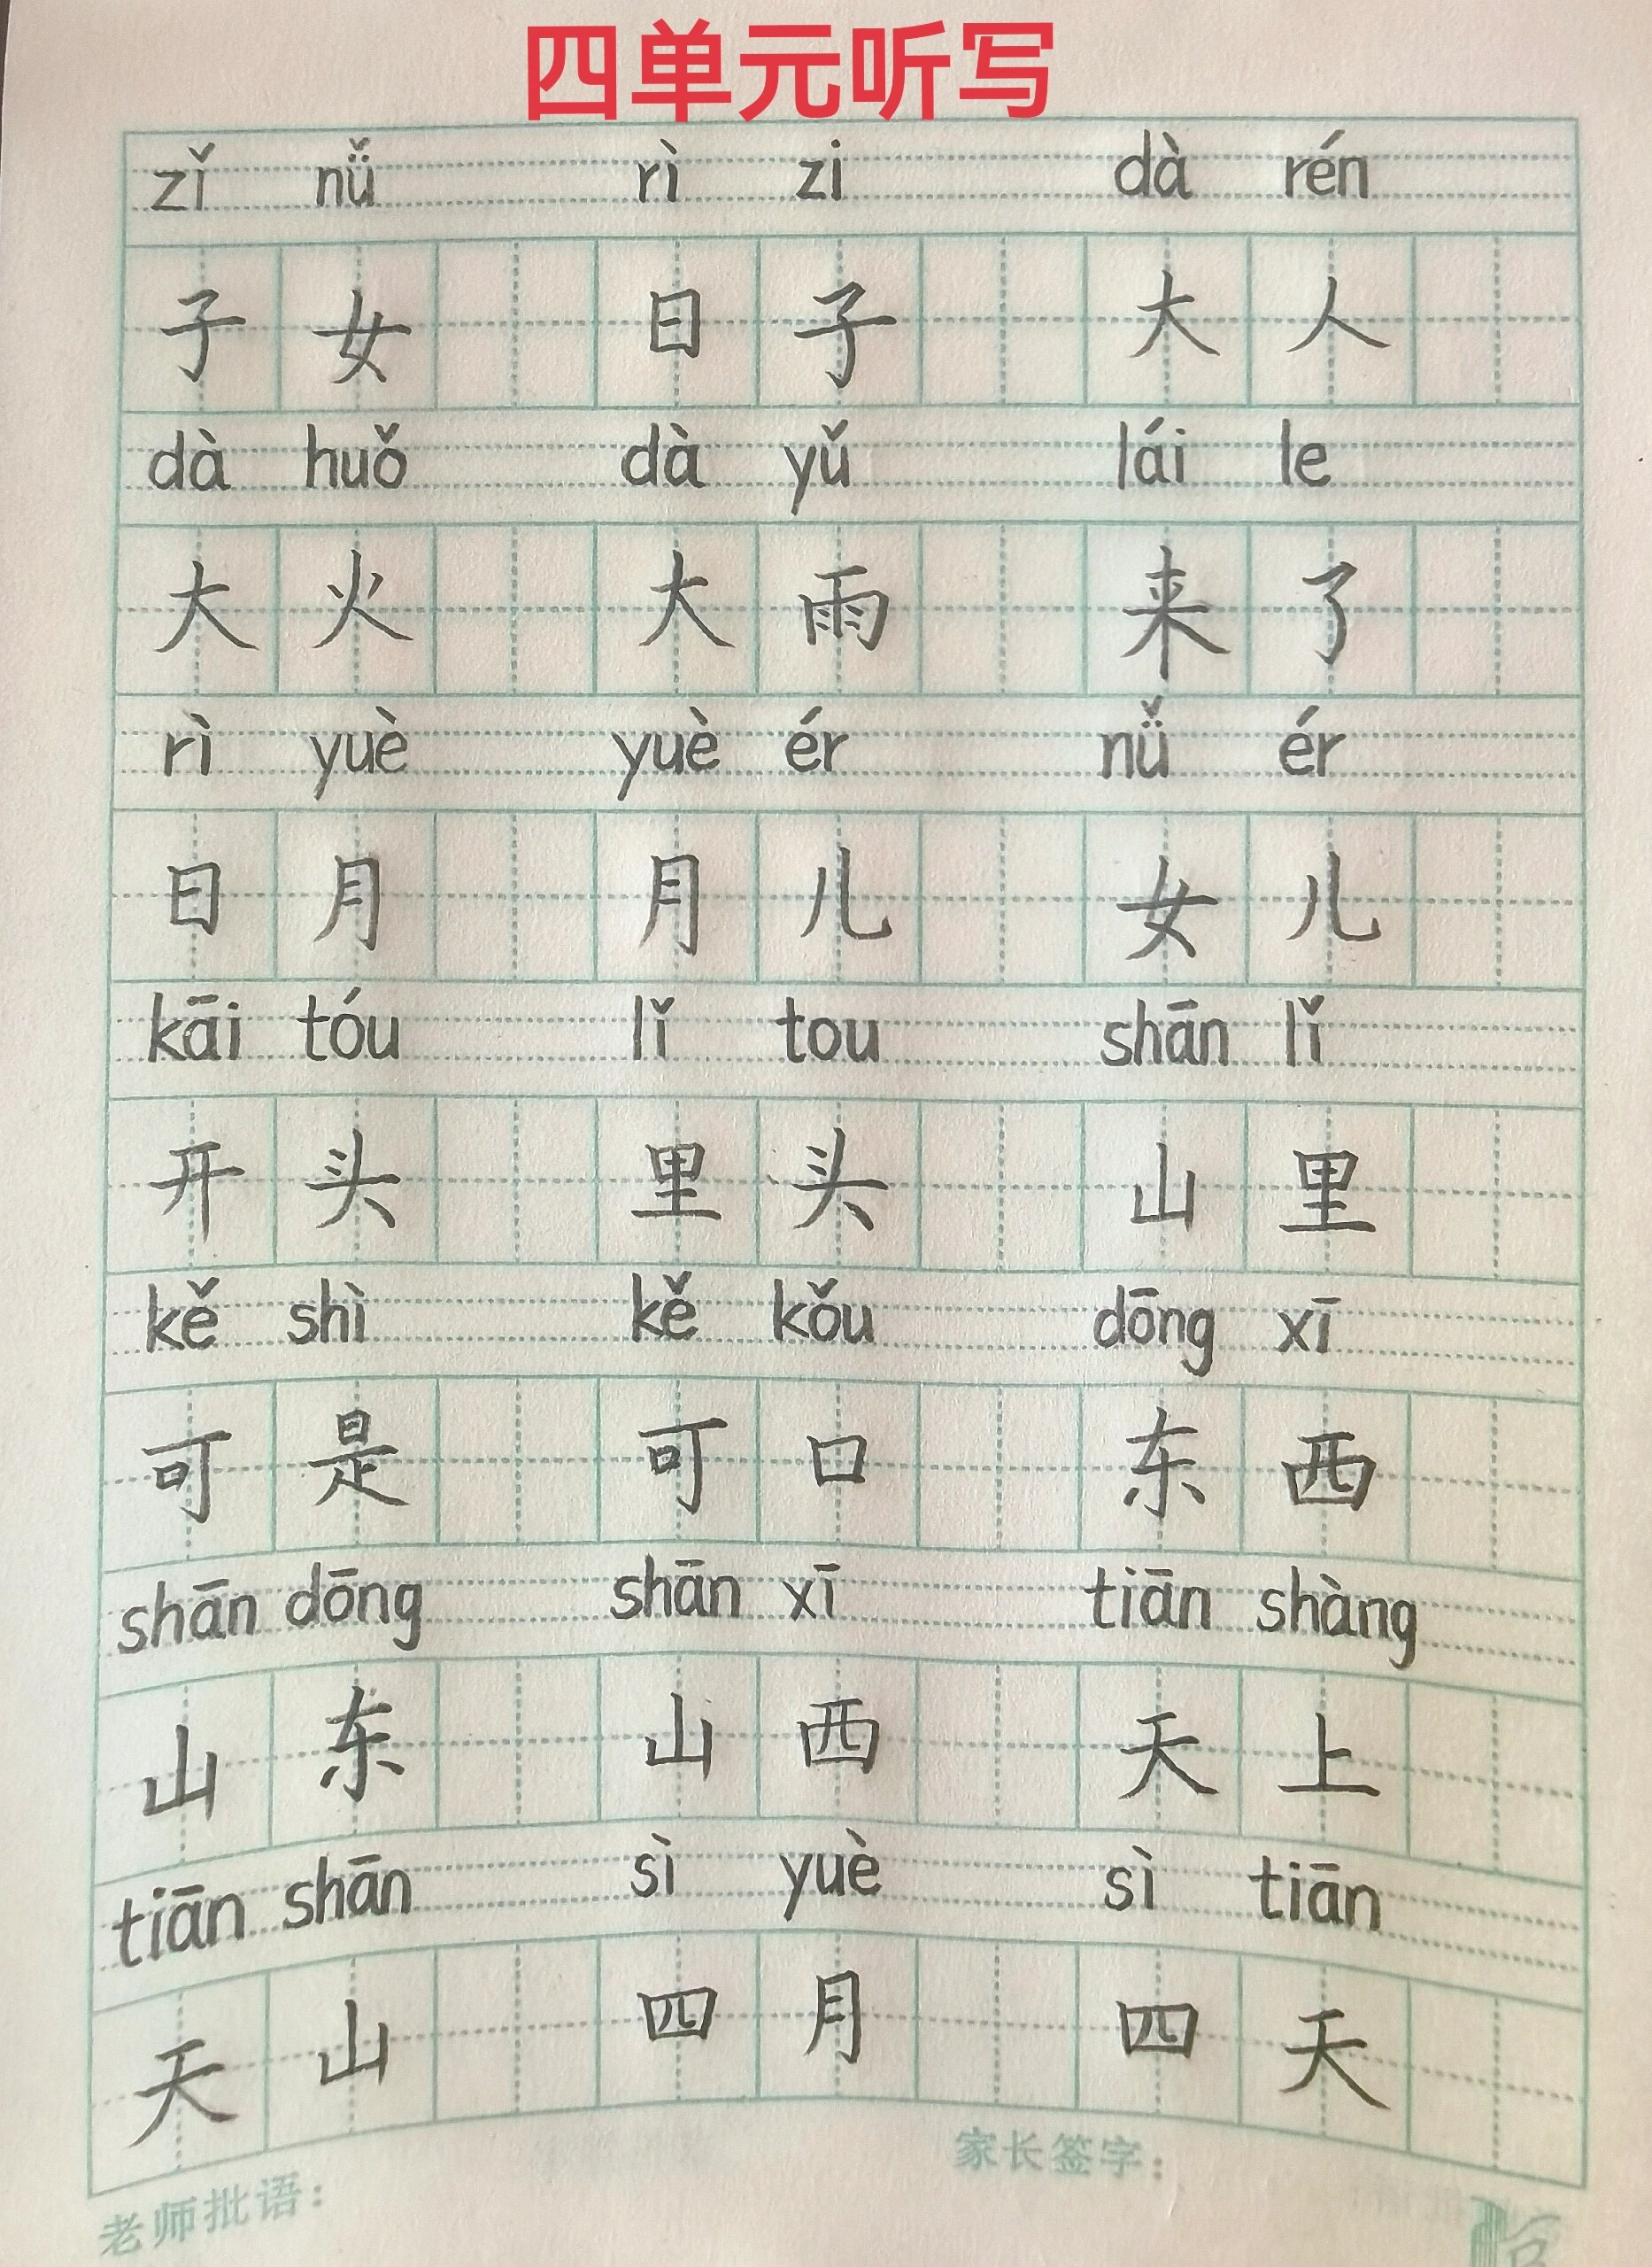 四单元听写
zǐ nǚ rì zi dà rén
子女 日子 大人
dà huǒ dà yǔ lái le
大火 大雨 来了
rì yuè yuè ér nǚ ér
日月 月儿 女儿
kāi tóu lǐ tou shān lǐ
开头 里头 山里
kě shì kě kǒu dōng xī
可是 可口 东西
shān dōng shān xī tiān shàng
山东 山西 天上
tiān shān sì yuè sì tiān
天山 四月 四天
老师批语： 家长签字：